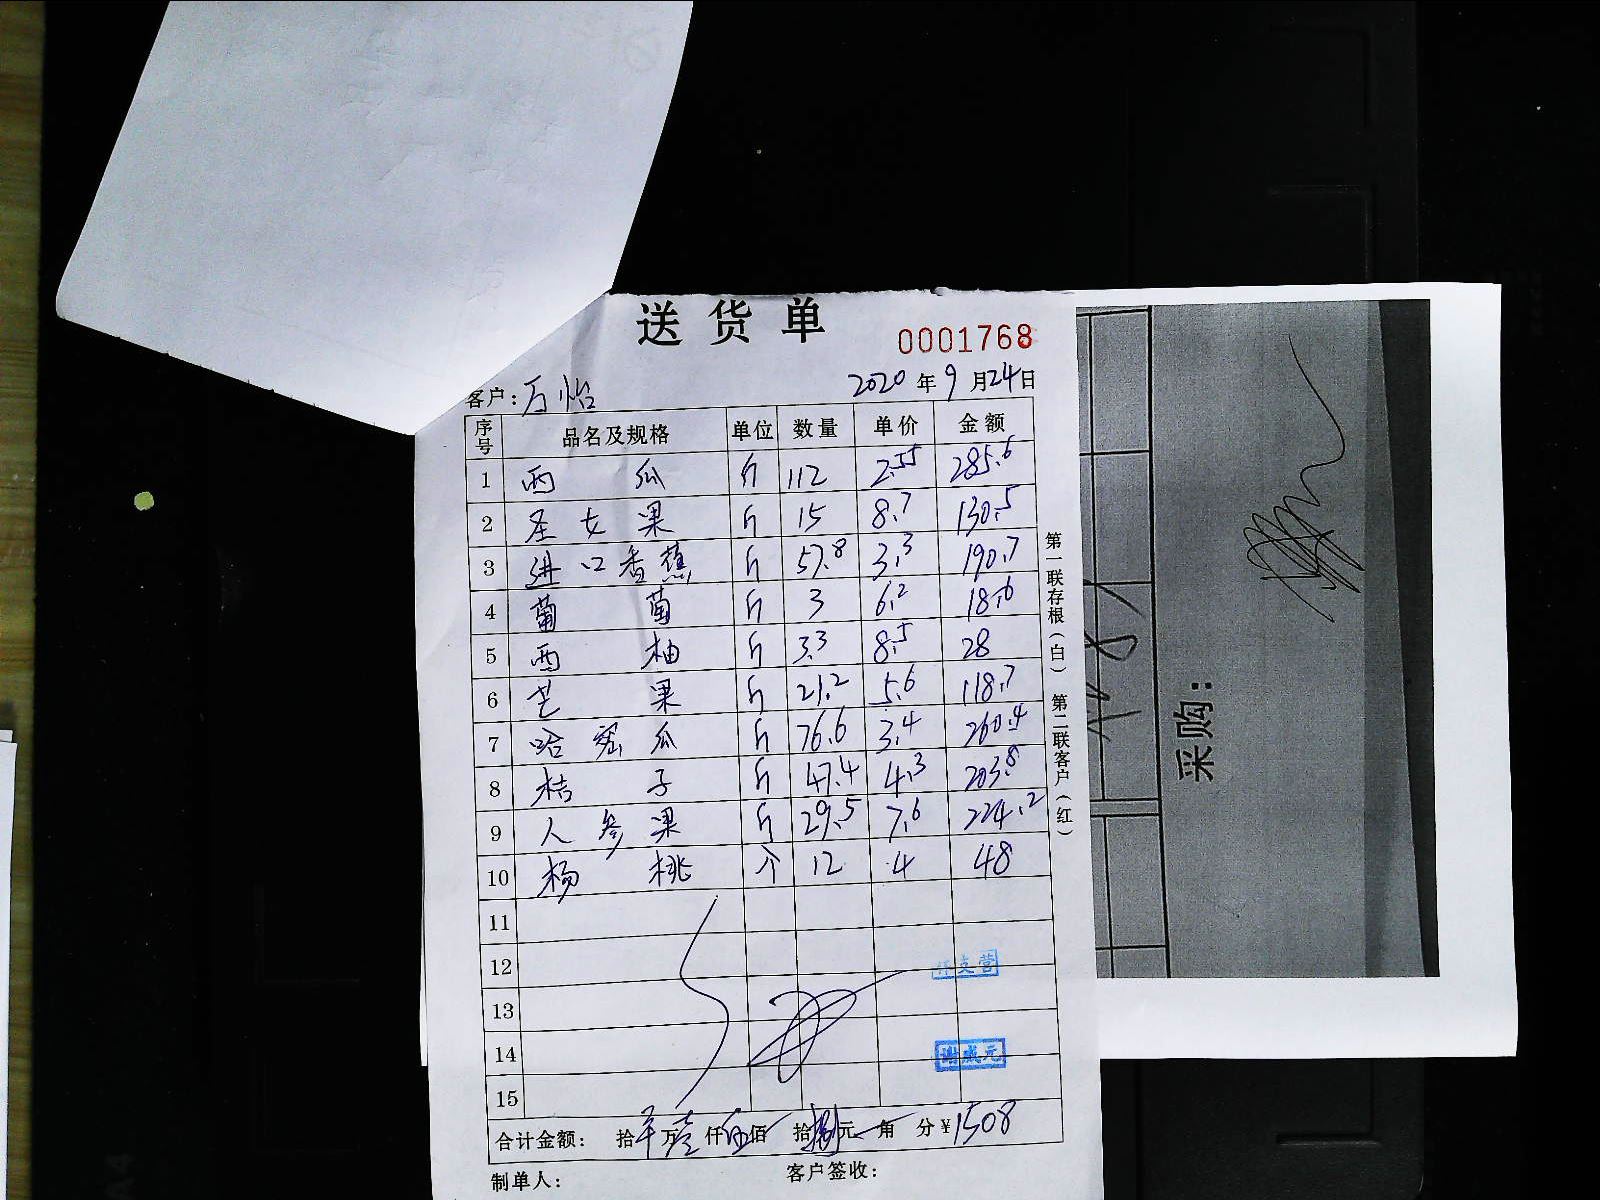 送货单
0001768
客户：万怡 2020年9月24日
序号 品名及规格 单位 数量 单价 金额
1 西瓜 斤 112 2.55 285.6
2 圣女果 斤 15 8.7 130.5
3 进口香蕉 斤 57.8 3.3 190.7
4 葡萄 斤 3 6.2 18.6
5 西柚 斤 3.3 8.5 28
6 芒果 斤 21.2 5.6 118.7
7 哈密瓜 斤 76.6 3.4 260.4
8 桔子 斤 47.4 4.3 203.8
9 人参果 斤 29.5 7.6 224.2
10 杨桃 个 12 4 48
11
12 支营
13
14 谢成元
15
合计金额： 拾 万壹仟伍佰 拾捌元 角 分¥1508
制单人： 客户签收：
第一联存根（白） 第二联客户（红）
采购：